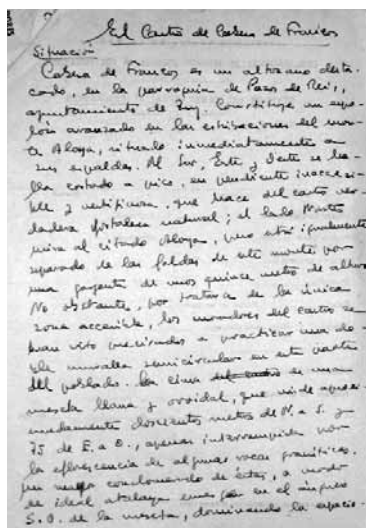 El Castro de Cabeza de Francos
Situación
Cabeza de Francos es un altozano desta-
cado, en la parroquia de Pazos de Reis,
ayuntamiento de Tuy. Constituye un espo-
lón avanzado en las estribaciones del mon-
te Aloya, situado inmediatamente a
sus espaldas. Al Sur, Este y Oeste se ha-
lla cortado a pico, en pendiente inaccesi-
ble y vertiginosa, que hace del castro ver-
dadera fortaleza natural; el lado Norte
mira al citado Aloya, pero está igualmente
separado de las faldas de este monte por
una garganta de unos quince metros de altura.
No obstante, por tratarse de la única
zona accesible, los moradores del castro se
han visto precisados a practicar una do-
ble muralla semicircular en esta parte
del poblado. La cima es una
meseta llana y ovoidal, que mide aproxi-
madamente doscientos metros de N. a S. y
75 de E. a O., apenas interrumpida por
la eflorescencia de algunas rocas graníticas.
Un conglomerado de éstas, a modo
de ideal atalaya emerge en el ángulo
S.O. de la meseta, dominando la espacio-